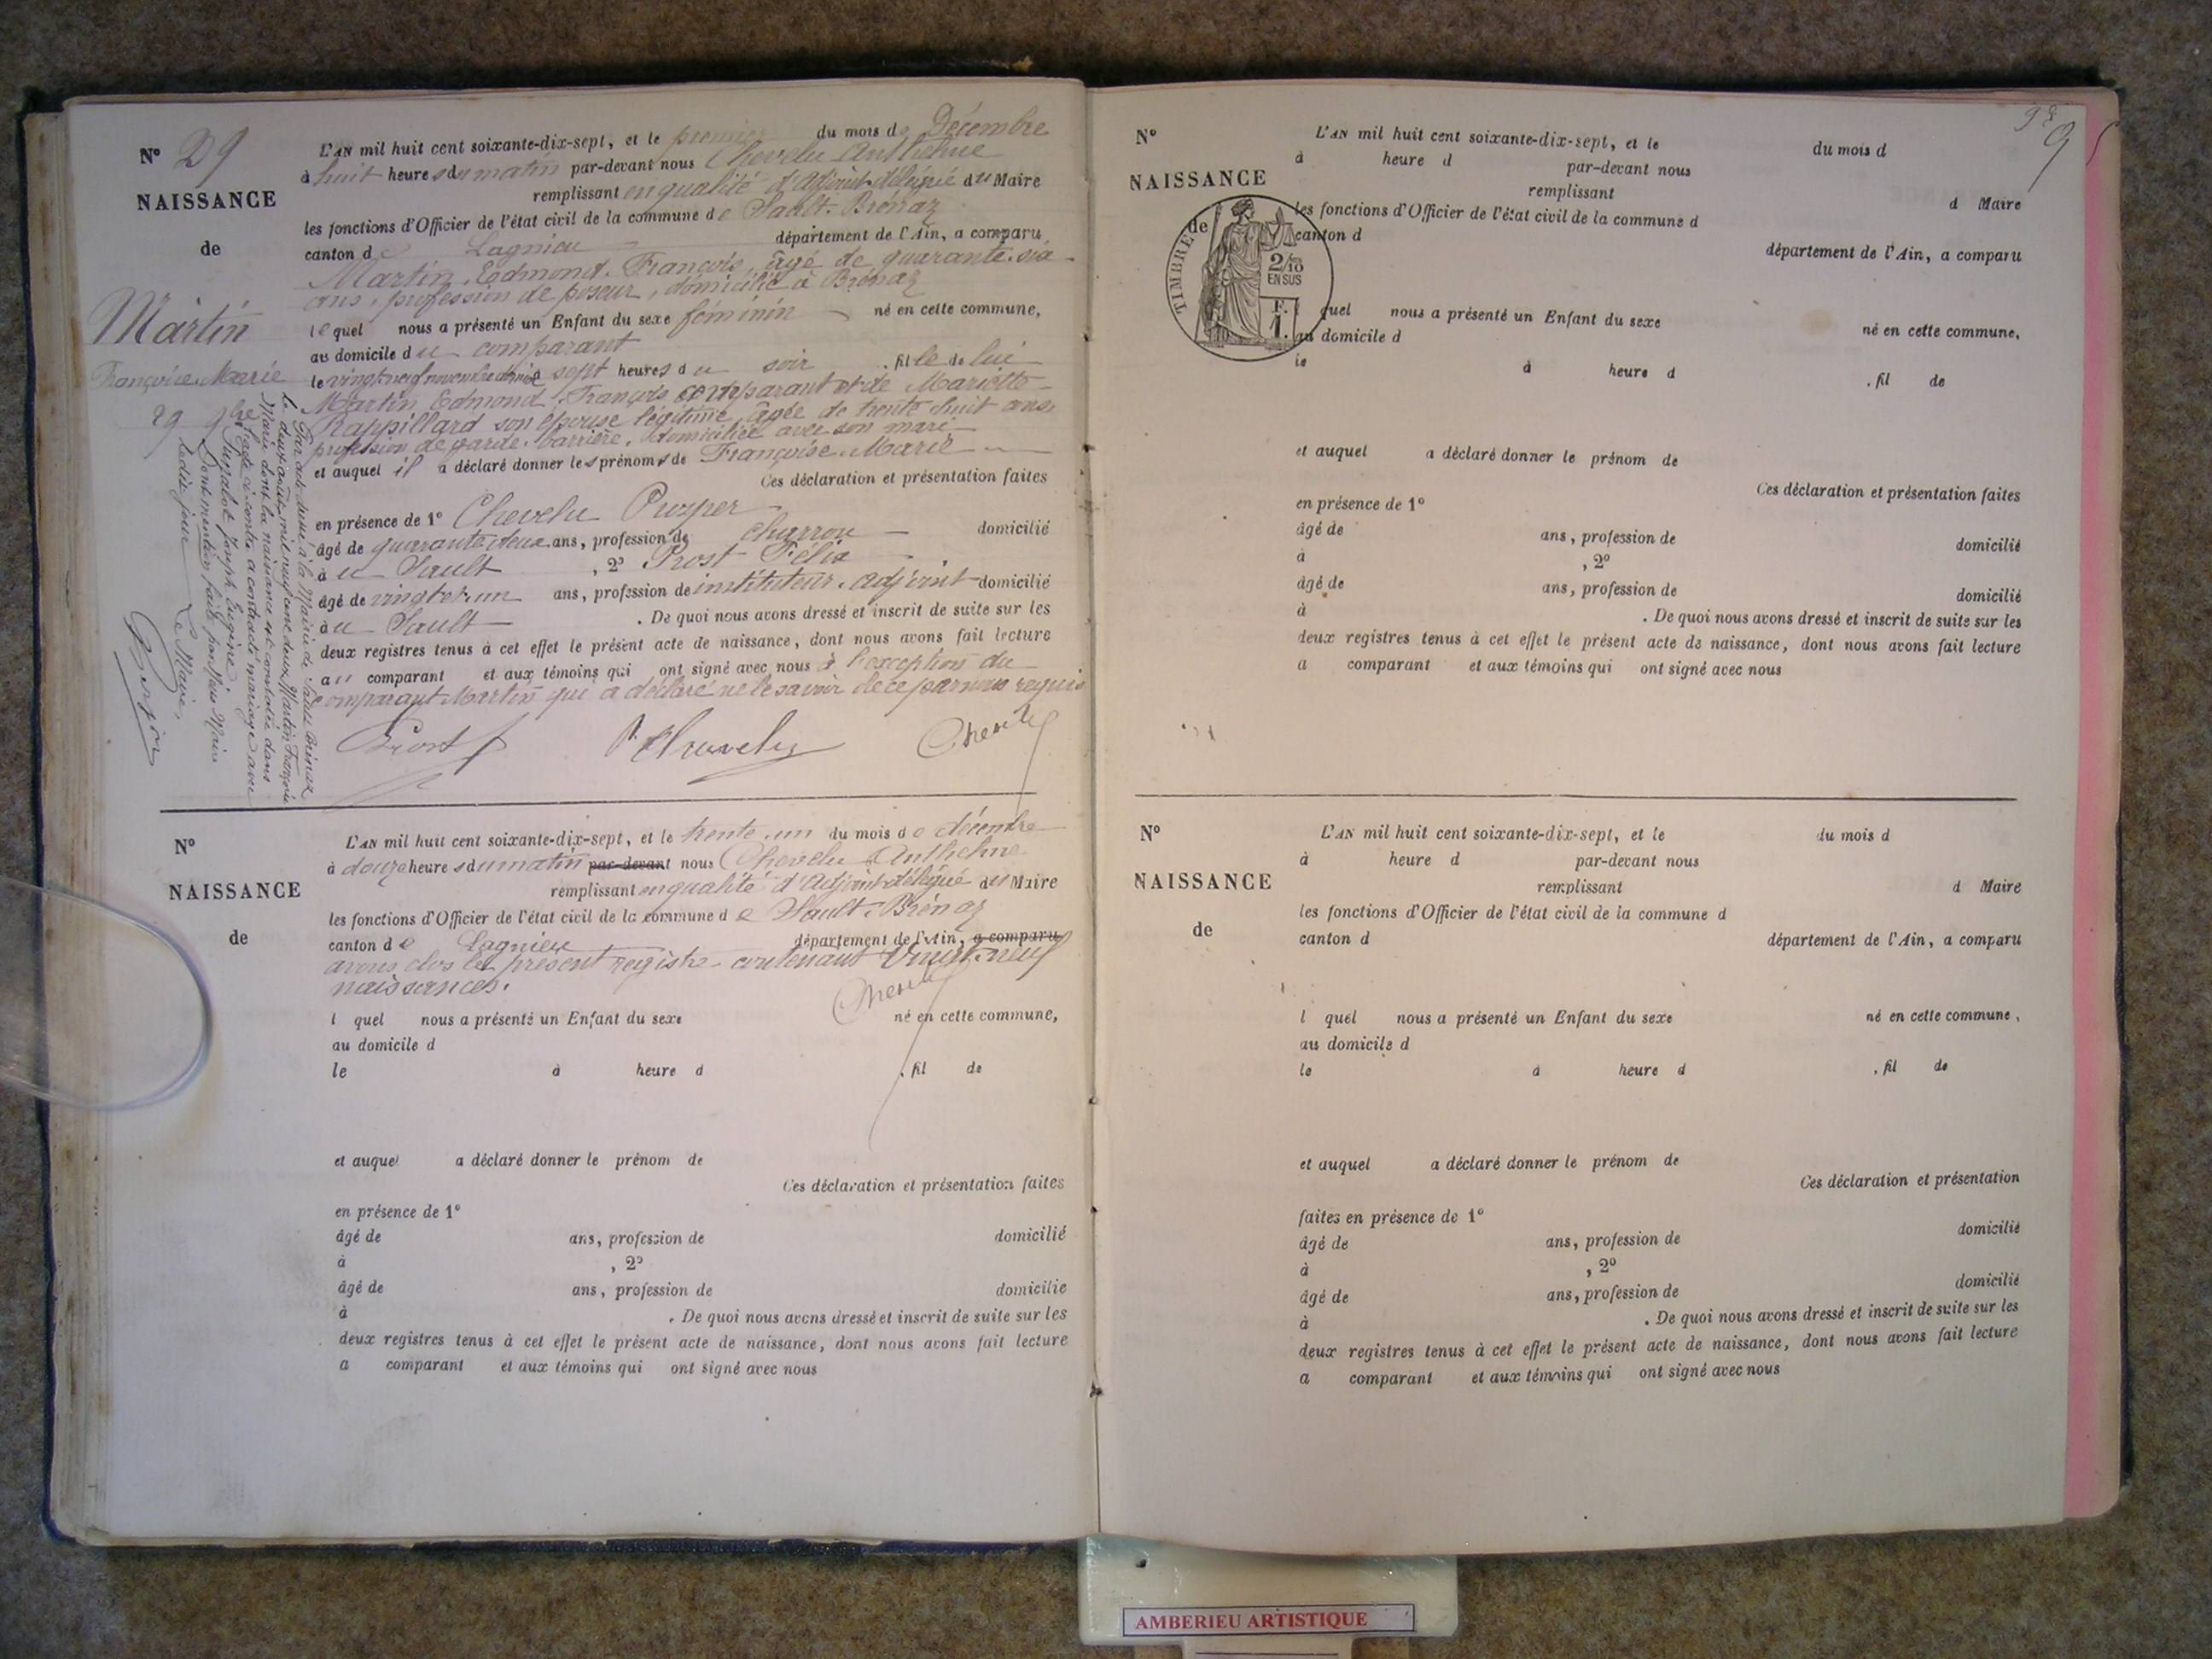 N° 29
NAISSANCE
de
Martin
Françoise Marie
29 9bre
L'AN mil huit cent soixante-dix-sept, et le premier du mois de Décembre
à huit heures du matin par-devant nous Chevelu Anthelme
remplissant en qualité d'Adjoint délégué du Maire
les fonctions d'Officier de l'état civil de la commune de Sault-Brénaz
canton de Lagnieu département de l'Ain, a comparu
Martin Edmond François, âgé de quarante-six
ans, profession de poseur, domicilié à Brénaz
lequel nous a présenté un Enfant du sexe féminin né en cette commune,
au domicile du comparant
le vingt-neuf novembre dernier à sept heures du soir, fille de lui
Martin Edmond François comparant et de Mariette
Rappillard son épouse légitime, âgée de trente huit ans,
profession de garde-barrière, domiciliée avec son mari
et auquel il a déclaré donner les prénoms de Françoise Marie
Ces déclaration et présentation faites
en présence de 1° Chevelu Prosper
âgé de quarante deux ans, profession de charron domicilié
au Sault, 2° Prost Félix
âgé de vingt et un ans, profession de instituteur-adjoint domicilié
au Sault. De quoi nous avons dressé et inscrit de suite sur les
deux registres tenus à cet effet le présent acte de naissance, dont nous avons fait lecture
au comparant et aux témoins qui ont signé avec nous à l'exception du
comparant Martin qui a déclaré ne le savoir de ce par nous requis
Prost f P. Chevelu Chevelu
Par acte dressé à la Mairie de Sault-Brénaz
le deux août mil neuf cent deux Martin Françoise
Marie dont la naissance est constatée dans
l'acte ci-contre a contracté mariage avec
Joseph Eugène
Dont mention faite par Nous Maire
ledit jour
Le Maire,
N°
NAISSANCE
de
L'AN mil huit cent soixante-dix-sept, et le trente-un du mois de décembre
à douze heures du matin par-devant nous Chevelu Anthelme
remplissant en qualité d'Adjoint délégué du Maire
les fonctions d'Officier de l'état civil de la commune de Sault-Brénaz
canton de Lagnieu département de l'Ain, a comparu
avons clos le présent registre contenant Vingt-neuf
naissances.
Chevelu
l quel nous a présenté un Enfant du sexe né en cette commune,
au domicile d
le à heure d , fil de
et auquel a déclaré donner le prénom de
Ces déclaration et présentation faites
en présence de 1°
âgé de ans, profession de domicilié
à , 2°
âgé de ans, profession de domicilié
à . De quoi nous avons dressé et inscrit de suite sur les
deux registres tenus à cet effet le présent acte de naissance, dont nous avons fait lecture
a comparant et aux témoins qui ont signé avec nous
9
N°
NAISSANCE
de
TIMBRE
2/10
EN SUS
F.
1.
L'AN mil huit cent soixante-dix-sept, et le du mois d
à heure d par-devant nous
remplissant d Maire
les fonctions d'Officier de l'état civil de la commune d
canton d département de l'Ain, a comparu
quel nous a présenté un Enfant du sexe né en cette commune,
au domicile d
le à heure d , fil de
et auquel a déclaré donner le prénom de
Ces déclaration et présentation faites
en présence de 1°
âgé de ans, profession de domicilié
à , 2°
âgé de ans, profession de domicilié
à . De quoi nous avons dressé et inscrit de suite sur les
deux registres tenus à cet effet le présent acte de naissance, dont nous avons fait lecture
a comparant et aux témoins qui ont signé avec nous
N°
NAISSANCE
de
L'AN mil huit cent soixante-dix-sept, et le du mois d
à heure d par-devant nous
remplissant d Maire
les fonctions d'Officier de l'état civil de la commune d
canton d département de l'Ain, a comparu
l quel nous a présenté un Enfant du sexe né en cette commune,
au domicile d
le à heure d , fil de
et auquel a déclaré donner le prénom de
Ces déclaration et présentation
faites en présence de 1°
âgé de ans, profession de domicilié
à , 2°
âgé de ans, profession de domicilié
à . De quoi nous avons dressé et inscrit de suite sur les
deux registres tenus à cet effet le présent acte de naissance, dont nous avons fait lecture
a comparant et aux témoins qui ont signé avec nous
AMBERIEU ARTISTIQUE